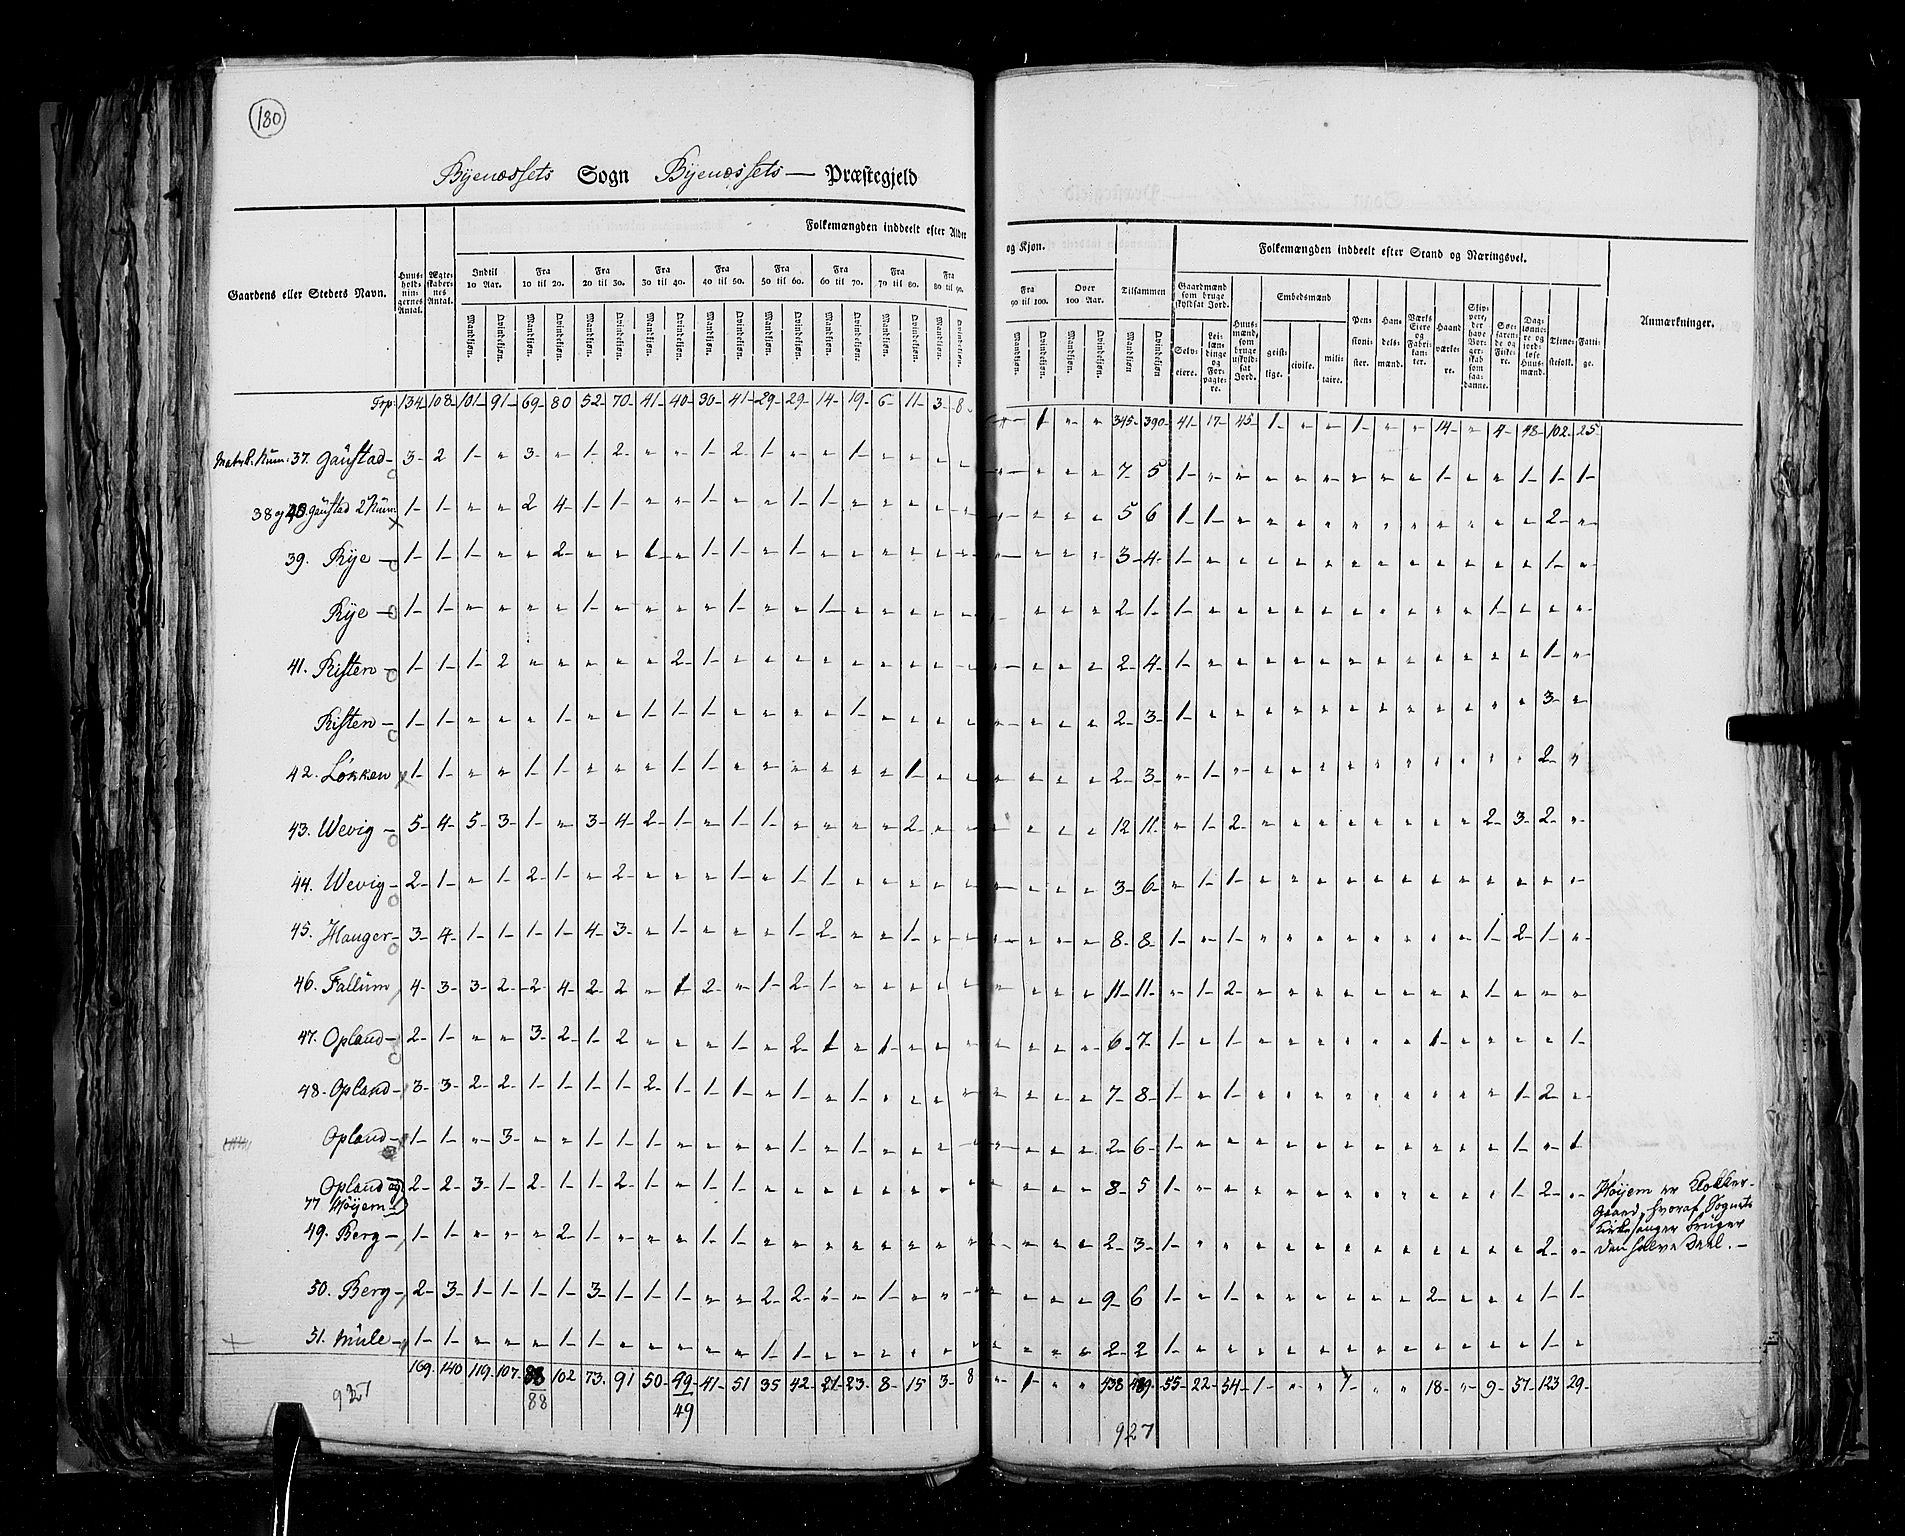 180
Byenæssets Sogn Byenæssets — Præstegjeld
Folkemængden inddeelt efter Alder og Kjøn.
Folkemængden inddeelt efter Stand og Næringsvei.
Gaardens eller Steders Navn.
Huus-holdnin-gernes Antal.
Ægte-skaber-nes Antal.
Indtil 10 Aar.
Fra 10 til 20.
Fra 20 til 30.
Fra 30 til 40.
Fra 40 til 50.
Fra 50 til 60.
Fra 60 til 70.
Fra 70 til 80.
Fra 80 til 90.
Fra 90 til 100.
Over 100 Aar.
Tilsammen
Mandkjøn. Qvindekjøn.
Gaardmænd som bruge skyldsat Jord.
Selv-eiere.
Lei-læn-dinge og For-pagte-re.
Huus-mænd, som bruge uskyld-sat Jord.
Embedsmænd
geist-lige. civile. mili-taire.
Pen-sioni-ster.
Han-dels-mænd.
Værks Eiere og Fabri-kan-ter.
Haand værke-re.
Skip-pere, der have Bor-ger-skab som saa-danne.
Søe-faren-de og Fiske-re.
Dag-lønne-re og jord-løse Huus-mænd.
Tjene-stefolk.
Fatti-ge.
Anmærkninger.
Trp: 134 108 101 91 69 80 52 70 41 40 30 41 29 29 14 19 6 11 3 8 " 1 " " 345 390 41 17 45 1 " " 1 " " 14 " 4 48 102 25
Matrk. Num. 37. Gaustad 3 2 1 " 3 " 1 2 " " 1 2 1 " " 1 " " " " " " " " 7 5 1 " " " " " " " " 1 " " 1 1 1
38 og 40. Gaustad 2 Num. 1 1 " " 2 4 1 1 " " 1 " " 1 1 " " " " " " " " " 5 6 1 1 " " " " " " " " " " " 2 "
39. Rye 1 1 1 " " 2 " " 1 " 1 1 " 1 " " " " " " " " " " 3 4 1 " " " " " " " " " " " " 1 "
Rye 1 1 " " " " 1 " " " " 1 " " 1 " " " " " " " " " 2 1 1 " " " " " " " " " " 1 " " "
41. Risten 1 1 1 2 " " " " " 2 1 " " " " " " " " " " " " " 2 4 1 " " " " " " " " " " " " 1 "
Risten 1 1 " " " 1 " " 1 1 1 " " " " 1 " " " " " " " " 2 3 1 " " " " " " " " " " " " 3 "
42. Løkken 1 1 " " 1 1 " " " 1 1 " " " " " " 1 " " " " " " 2 3 " 1 " " " " " " " " " " " 2 "
43. Wevig 5 4 5 3 1 " 3 4 2 1 " 1 1 " " " " 2 " " " " " " 12 11 " 1 2 " " " " " " " " 2 3 2 "
44. Wevig 2 1 " 1 2 1 " 2 " " " 1 " 1 1 " " " " " " " " " 3 6 " 1 1 " " " " " " " " " " " "
45. Hanger 3 4 1 1 1 1 4 3 " 1 " " " 1 2 " " 1 " " " " " " 8 8 1 " 1 " " " " " " " " 1 2 1 "
46. Fallum 4 3 3 2 2 4 2 2 " 1 2 " 1 2 1 " " " " " " " " " 11 11 " 1 2 " " " " " " " " 1 " " "
47. Opland 2 1 " " 3 2 1 2 " " " 1 " 2 1 " 1 " " " " " " " 6 7 1 " 1 " " " " " " 1 " " " " 1
48. Opland 3 3 2 2 1 1 1 1 2 1 1 1 " 1 " 1 " " " " " " " " 7 8 1 " 1 " " " " " " " " " 1 2 "
Opland 1 1 " 3 " " 1 1 1 " " " " 1 " 1 " " " " " " " " 2 6 1 " " " " " " " " " " " 1 " 1
Opland og 77 Høyem 2 2 3 1 2 1 1 2 1 " 1 1 " " " " " " " " " " " " 8 5 1 " " " " " " " " " " " 1 2 "
Høyem er Klokker-
Gaard, hvoraf Sognets
Kirkesanger bruger
den halve Deel. —
49. Berg 1 1 " " " 2 1 " " " 1 1 " " " " " " " " " " " " 2 3 1 " " " " " " " " " " " " 2 "
50. Berg 2 3 1 1 1 1 3 1 1 1 " " 2 2 " " 1 " " " " " " " 9 6 1 " 1 " " " " " " 2 " " " 1 1
51. Mule 1 1 " " " 1 1 " " " " " 1 1 " " " " " " " " " " 2 2 1 " " " " " " " " " " " " 1 "
169 140 119 107 88 102 73 91 50 49 41 51 35 42 21 23 8 15 3 8 " 1 " " 438 489 55 22 54 1 " " 1 " " 18 " 9 57 123 29
88 49
927
927